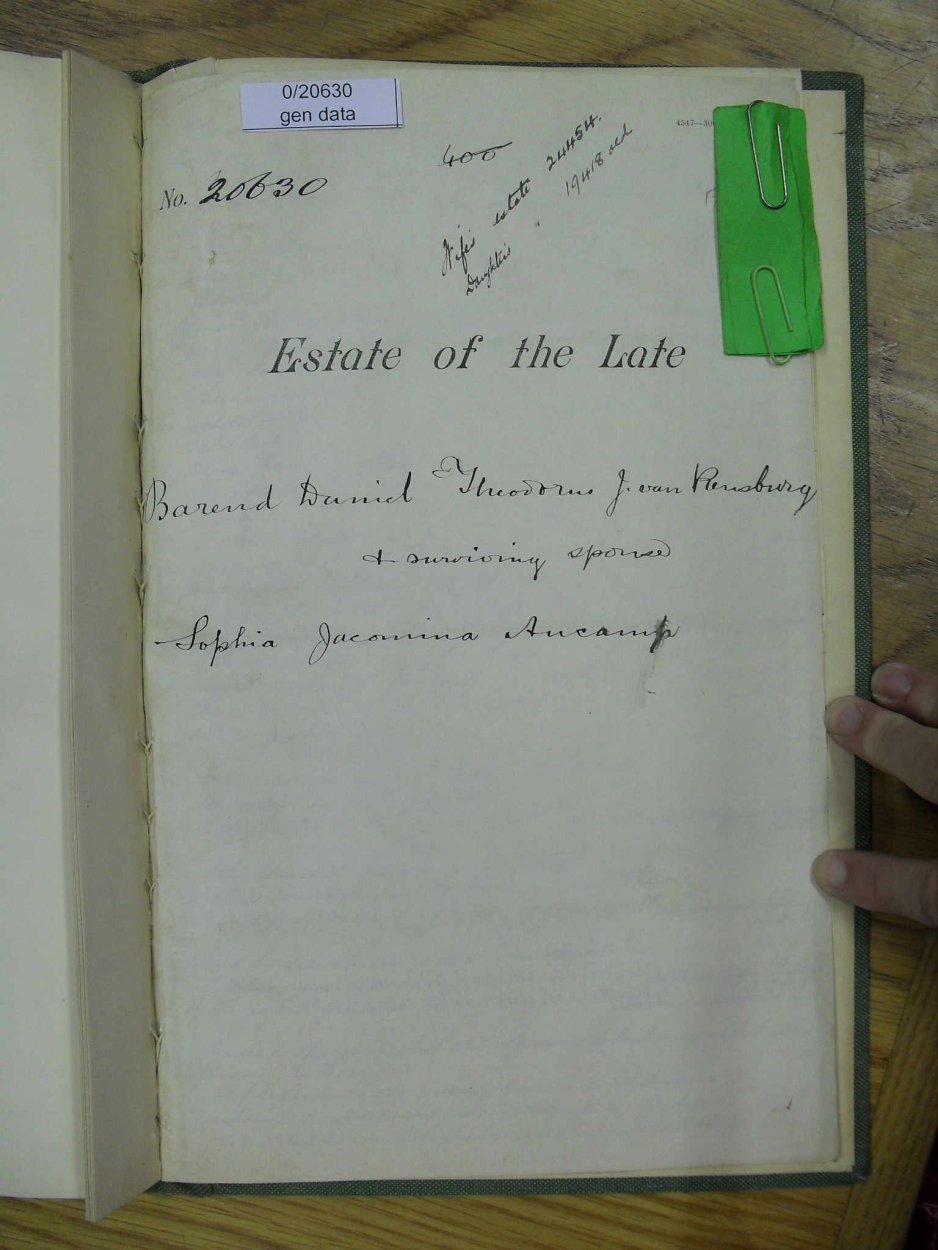 0/20630
gen data
400
No. 20630
Wife's estate 24454.
Daughters " 19418 old
Estate of the Late
Barend Daniel Theodorus J. van Rensburg
& surviving spouse
Sophia Jacomina Aucamp